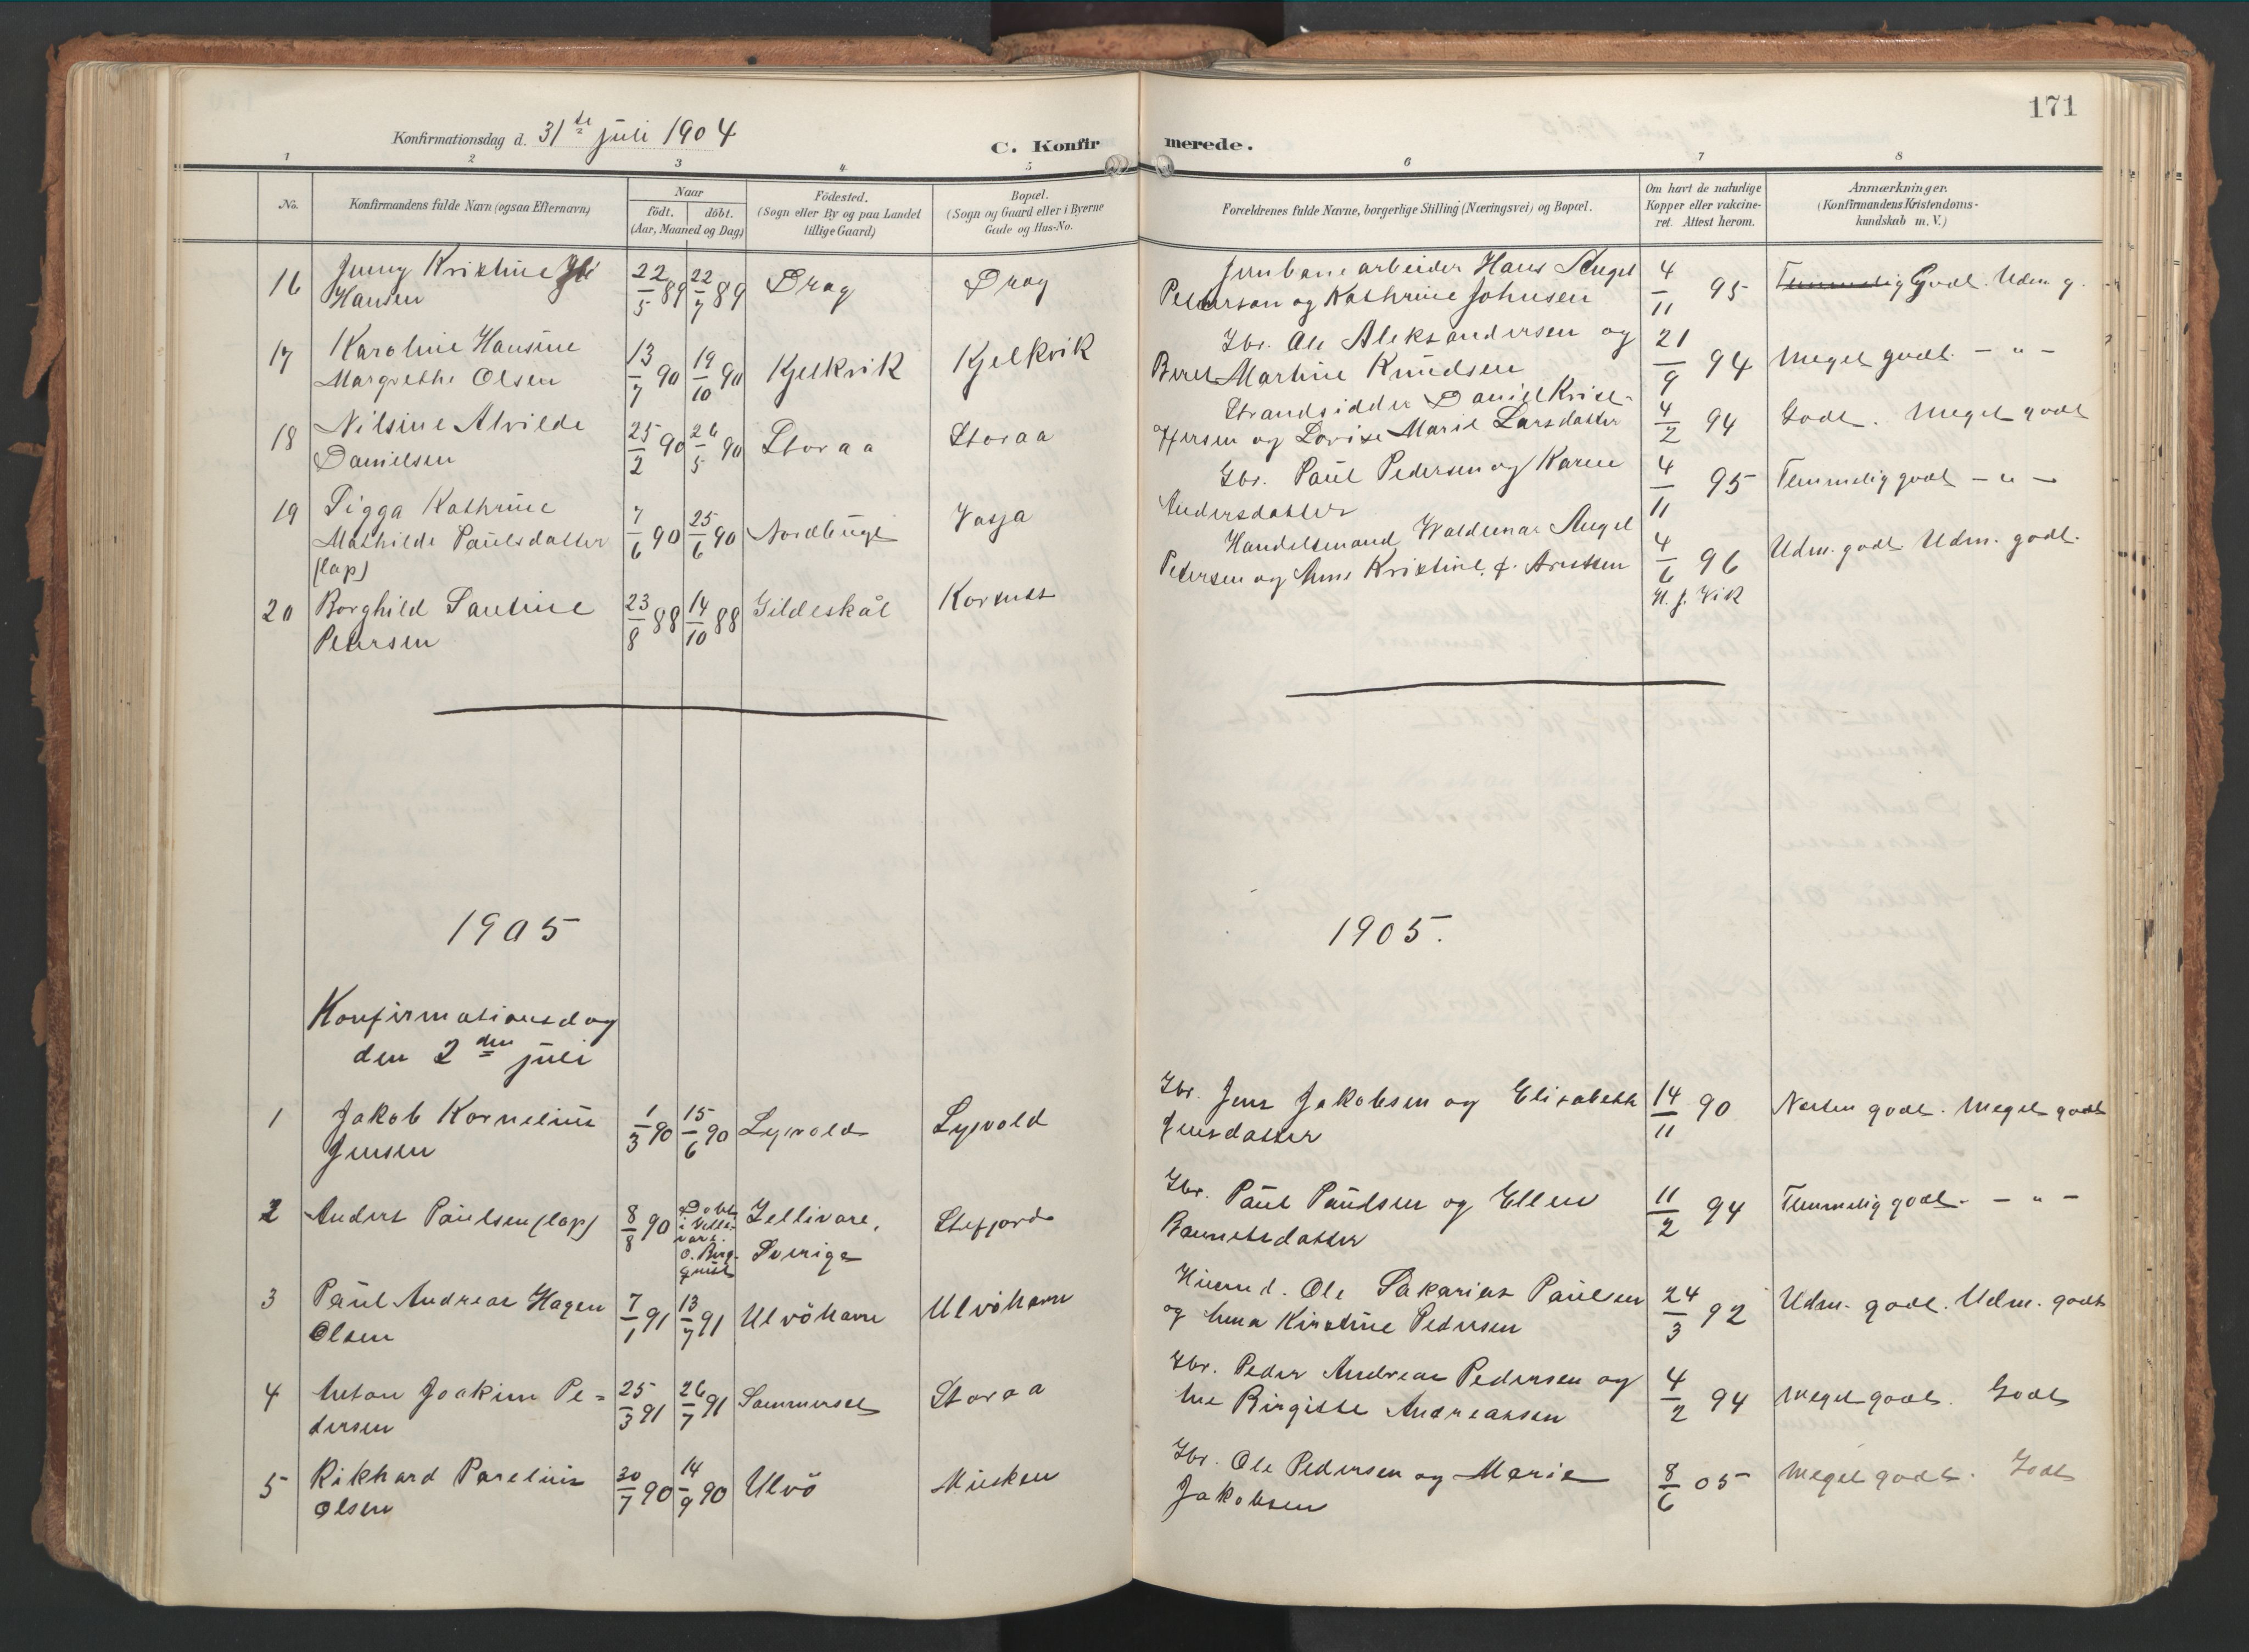 171
Konfirmationsdag d. 31te juli 1904
C. Konfirmerede.
1 2 3 4 5 6 7 8
No.
Konfirmandens fulde Navn (ogsaa Efternavn)
Naar
födt. döbt.
(Aar, Maaned og Dag)
Födested.
(Sogn eller By og paa Landet
tillige Gaard)
Bopæl.
(Sogn og Gaard eller i Byerne
Gade og Hus-No.
Forældrenes fulde Navne, borgerlige Stilling (Næringsvei) og Bopæl.
Om havt de naturlige
Kopper eller vakcine-
ret. Attest herom.
Anmærkninger.
(Konfirmandens Kristendoms-
kundskab m. V.)
16 Jenny Kristine
Hansen
22/5 89 22/7 89 Drag Drag
Jernbanearbeider Hans Angel
Petterson og Kathrine Johnsen
4/11 95 Temmelig Godt. Udm g.
17 Karoline Hansine
Margrethe Olsen
13/7 90 19/10 90 Kjelkvik Kjelkvik
Gbr. Ole Aleksandersen og
Beret Martine Knudsen
21/9 94 Meget godt. - " -
18 Nilsine Alvilde
Danielsen
25/2 90 26/5 90 Storaa Storaa
Strandsidder Daniel Krist-
offersen og Lovise Marie Larsdatter
4/2 94 Godt. Meget godt
19 Sigga Kathrine
Mathilde Paulsdatter
(lap)
7/6 90 25/6 90 Nordbugt Vasja
Gbr. Paul Pedersen og Karen
Andersdatter
4/11 95 Temmelig godt - " -
20 Borghild Santine
Petersen
23/8 88 14/10 88 Gildeskål Korsnes
Handelsmand Waldemar Angel
Petersen og Anna Kristine f. Arntsen
4/6 96
H. J. Vik
Udm. godt. Udm. godt.
1905
1905.
Konfirmationsdag
den 2den juli
1 Jakob Kornelius
Jensen
1/3 90 15/6 90 Lysvold Lysvold
Gbr. Jens Jakobsen og Elisabeth
Jensdatter
14/11 90 Næsten godt. Meget godt
2 Anders Paulsen (lap)
8/8 90 Döbt
i Gelli-
vare.
O. Berg-
quist
Gellivare,
Sverige
Stefjord
Gbr. Paul Paulsen og Ellen
11/2 94 Temmelig godt. - " -
3 Paul Andreas Hagen
Olsen
7/1 91 13/7 91 Ulvöhavn Ulvöhavn
Ole Sakarias Paulsen
og Anna Kirstine Pedersen
24/3 92 Udm. godt. Udm. godt
4 Anton Joakim Pe=
dersen
25/3 91 26/7 91 Sommerset Storaa
Gbr. Peder Andreas Pedersen og
Ane Birgitte Andreassen
4/2 94 Meget godt. Godt
5 Rikhard Parelius
Olsen
30/7 90 14/9 90 Ulvö Musken
Gbr. Ole Pedersen og Marie
Jakobsen
8/6 05 Meget godt. Godt